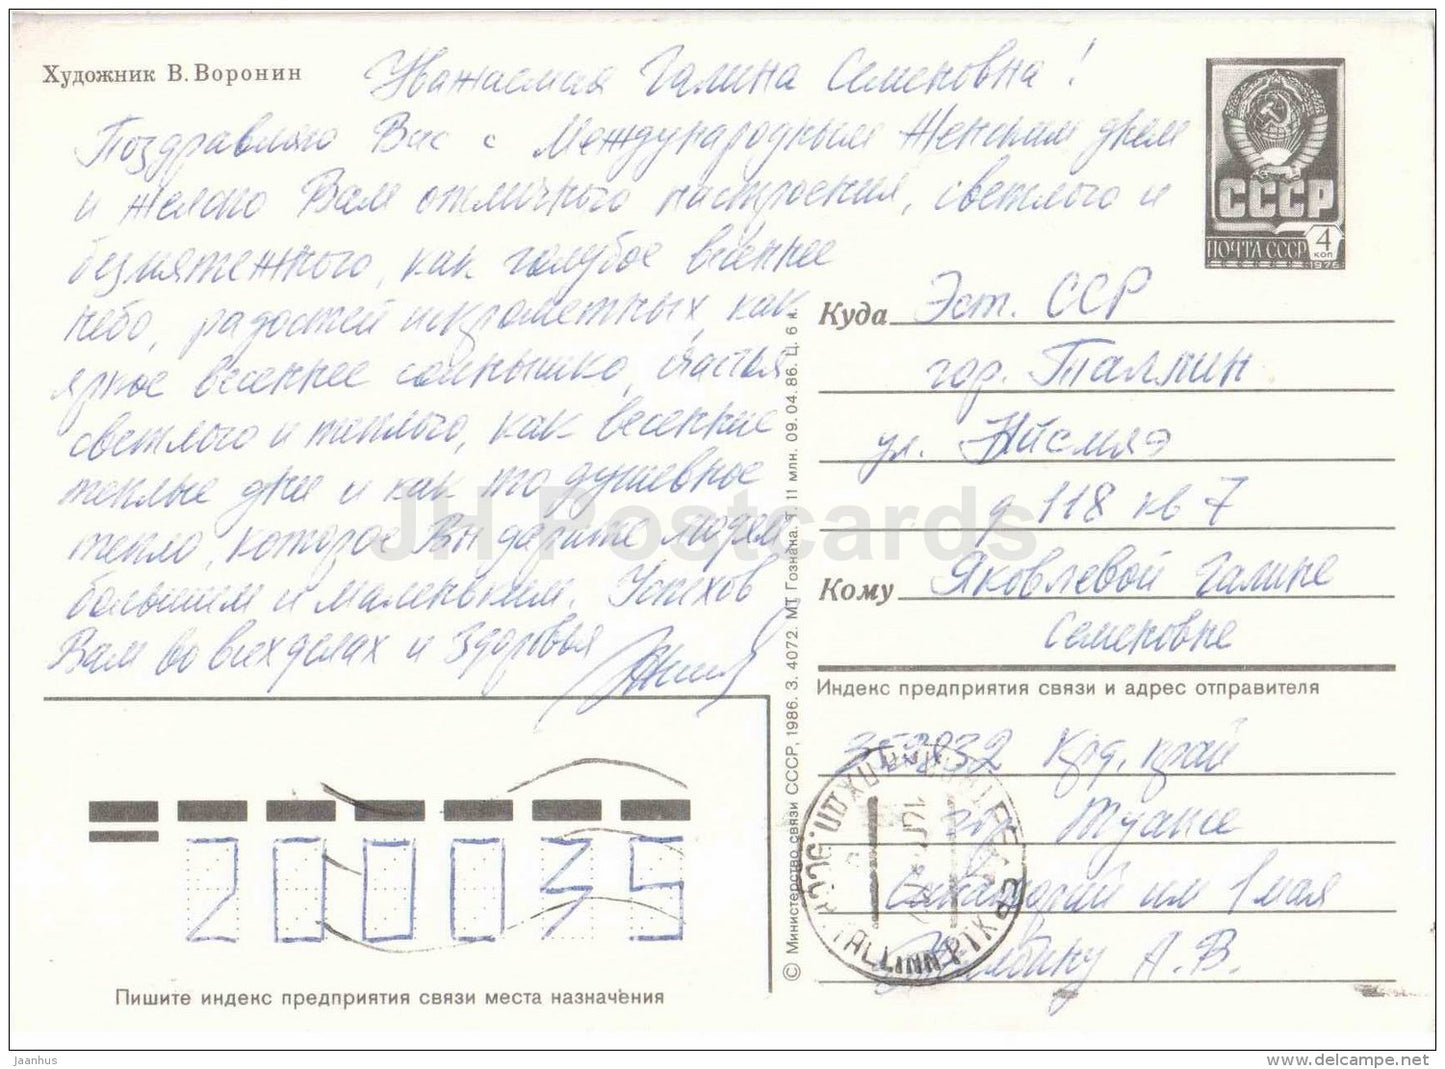 Художник В. Воронин
Уважаемая Галина Семеновна!
Поздравляю Вас с Международным Женским днем
и желаю Вам отличного настроения, светлого и
безмятежного, как голубое весеннее
небо, радостей искрометных, как
яркое весеннее солнышко, счастья
светлого и теплого, как весенние
теплые дни и как то душевное
тепло, которое Вы дарите людям
большим и маленьким. Успехов
Вам во всех делах и здоровья
СССР
ПОЧТА СССР 4
КОП
1976
Куда Эст. ССР
гор. Таллин
ул. Ыйсмяэ
д 118 кв 7
Кому Яковлевой Галине
Семеновне
Индекс предприятия связи и адрес отправителя
352832 Крд. край
Туапсе
Санаторий им 1 мая
А. В.
TALLINN
200035
Пишите индекс предприятия связи места назначения
© Министерство связи СССР, 1986. З. 4072. МТ Гознака. Т. 11 млн. 09.04.86. Ц. 6 к.
JH Postcards
jaanhus
www.delcampe.net